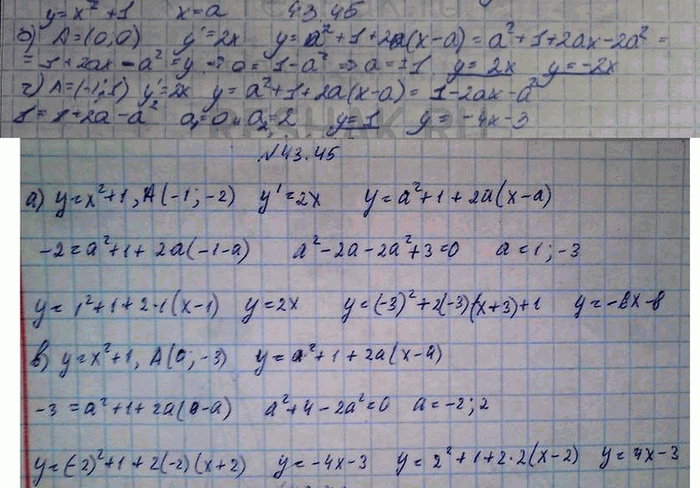 y=x²+1 x=a 43.45
б) A=(0,0) y'=2x y=a²+1+2a(x-a)=a²+1+2ax-2a²=
=1+2ax-a²=y → 0=1-a² ⇒ a=±1 y=2x y=-2x
г) A=(-1;1) y'=2x y=a²+1+2a(x-a)=1-2ax-a²
a₂=2 y=1 y=-4x-3
№43.45
а) y=x²+1, A(-1;-2) y'=2x y=a²+1+2a(x-a)
-2=a²+1+2a(-1-a) a²-2a-2a²+3=0 a=1;-3
y=1²+1+2·1(x-1) y=2x y=(-3)²+2(-3)(x+3)+1 y=-6x-8
в) y=x²+1, A(0;-3) y=a²+1+2a(x-a)
-3=a²+1+2a(0-a) a²+4-2a²=0 a=-2;2
y=(-2)²+1+2(-2)(x+2) y=-4x-3 y=2²+1+2·2(x-2) y=4x-3